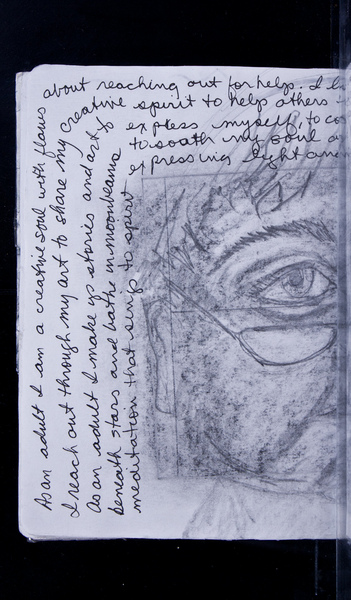 As an adult I am a creative soul with flaws
I reach out through my art to share my creative spirit to help others
As an adult I make up stories and art to express myself, to co
beneath stars and bathe in moonbeams to sooth my soul a
meditation that sings to spirit expressing light and
about reaching out for help. I